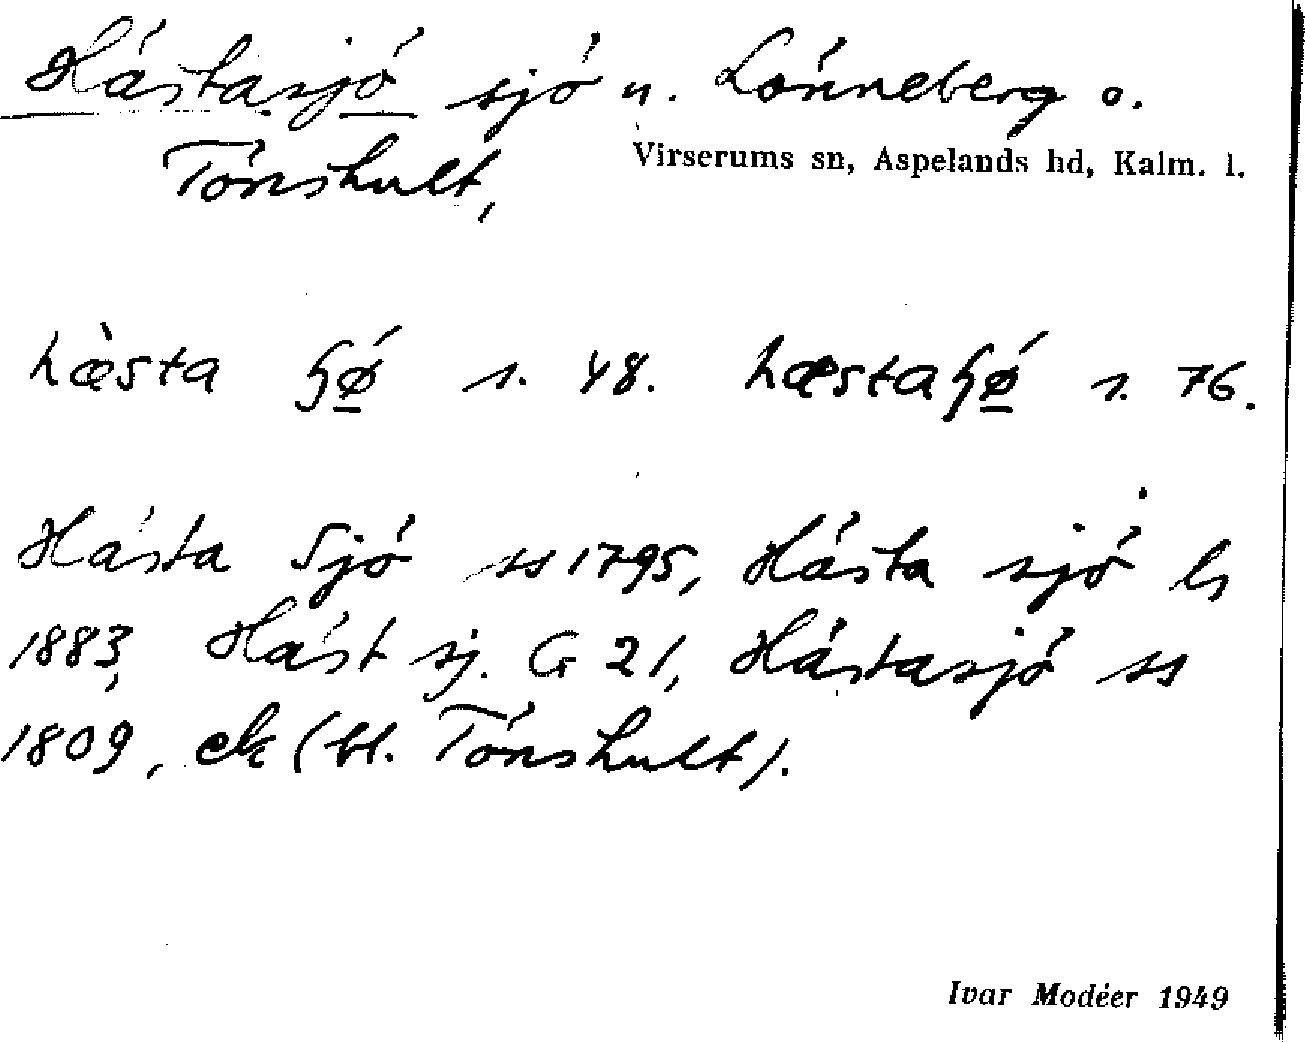 Hästasjö sjö u. Lönneberg o.
Tönshult,
Virserums sn, Aspelands hd, Kalm. l.
hæ̀sta ɧǿ̲ s. 48. hæstaɧǿ̲ s. 76.
Hästa Sjö ss 1795, Hästa sjö ls
1883, Häst sj. G 21, Hästasjö ss
1809, ek (bl. Tönshult).
Ivar Modéer 1949